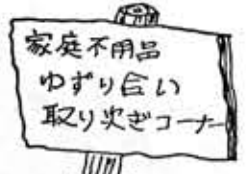 家庭不用品
ゆずり合い
取り次ぎコーナー